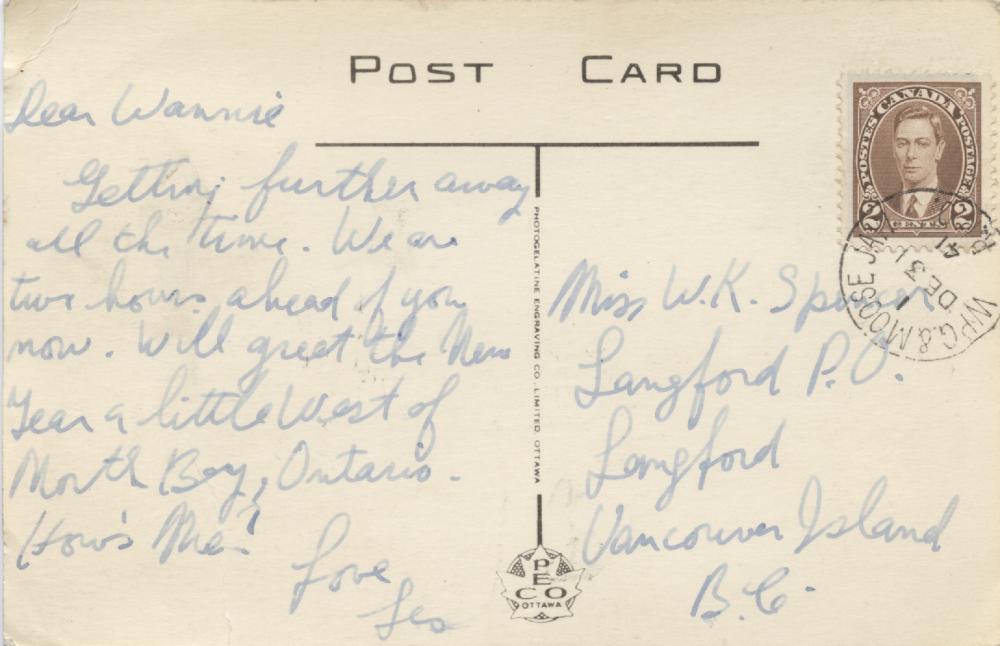 POST CARD
Dear Wannie
Getting further away
all the time. We are
two hours ahead of you
now. Will greet the New
Year a little West of
North Bay, Ontario.
How's Me?
Love
Les
PHOTOGELATINE ENGRAVING CO. LIMITED. OTTAWA
PECO
OTTAWA
POSTES CANADA POSTAGE
2 CENTS 2
WPG. & MOOSE JAW
DE 31
41
Miss W.K. Spencer
Langford P.O.
Langford
Vancouver Island
B.C.